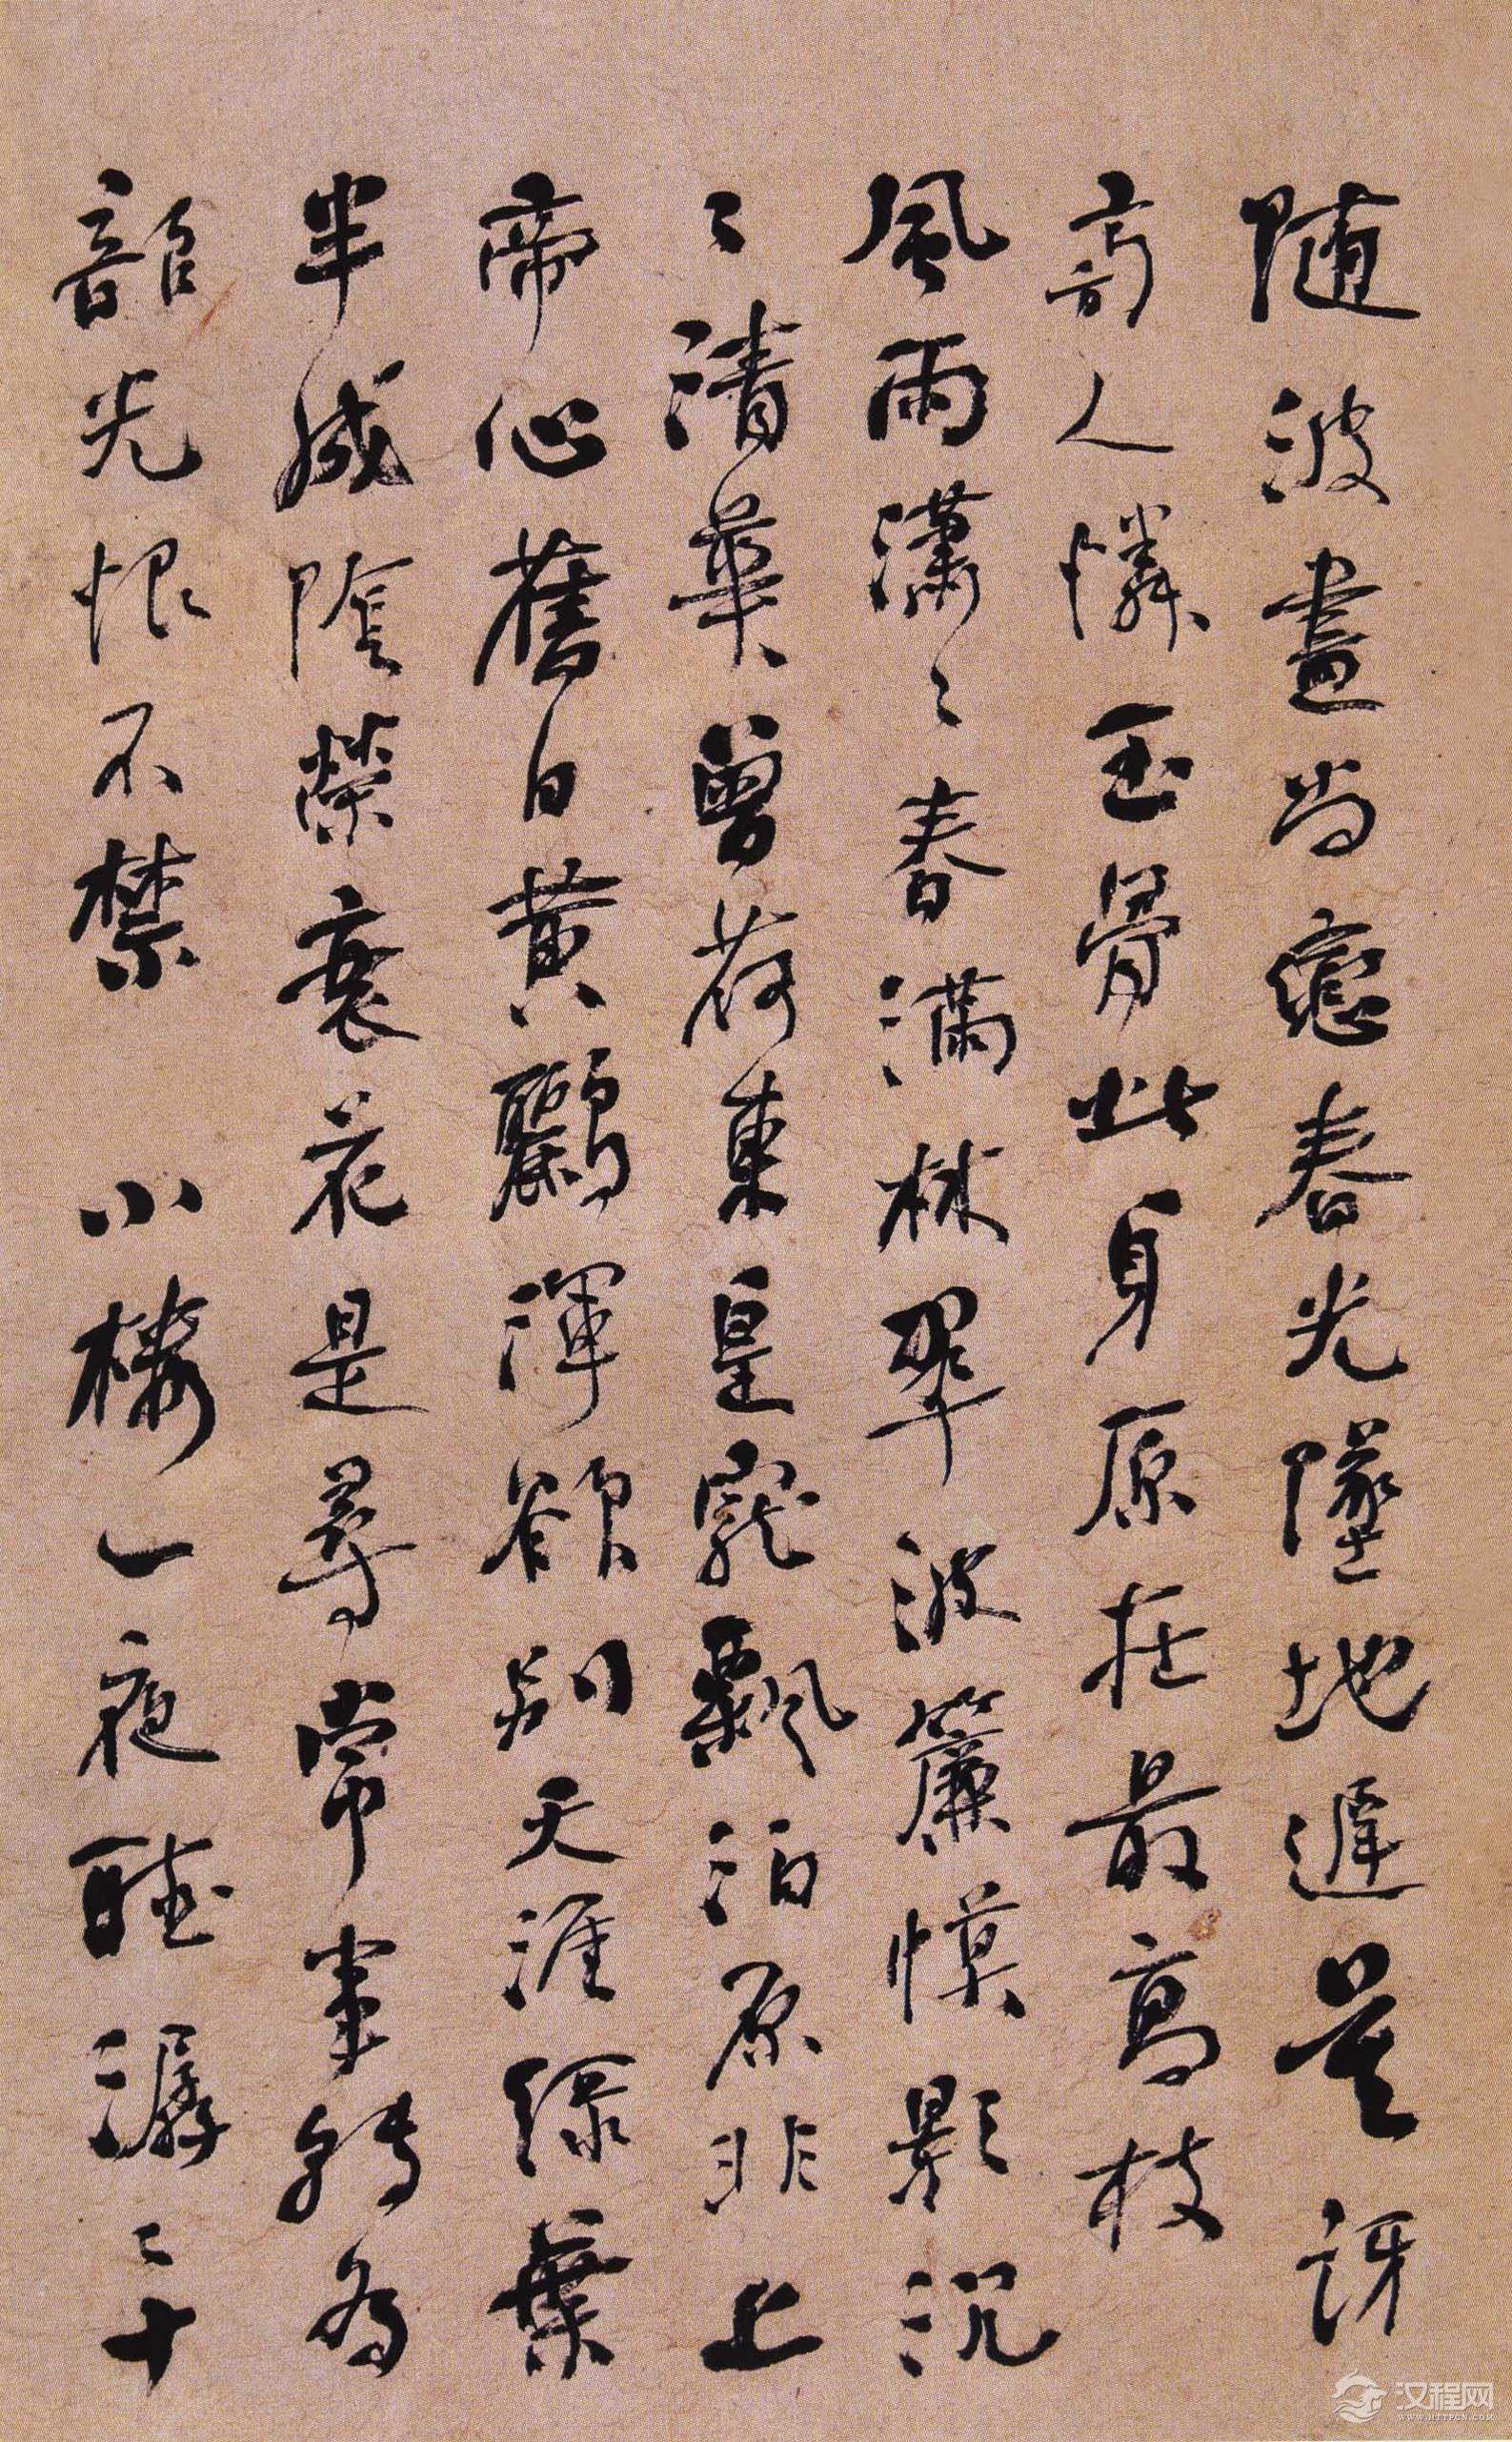 隨波盡尚戀春光墜地遲莫訝
旁人憐玉骨此身原在最高枝
風雨瀟〻春滿林翠波簾幙影沉
〻清華曾荷東皇寵飄泊原非上
帝心舊日黃鸝渾欲別天涯綠葉
半成陰榮衰花是尋常事轉為
韶光恨不禁 小樓一夜聽潺〻十
汉程网
WWW.HTTPCN.COM